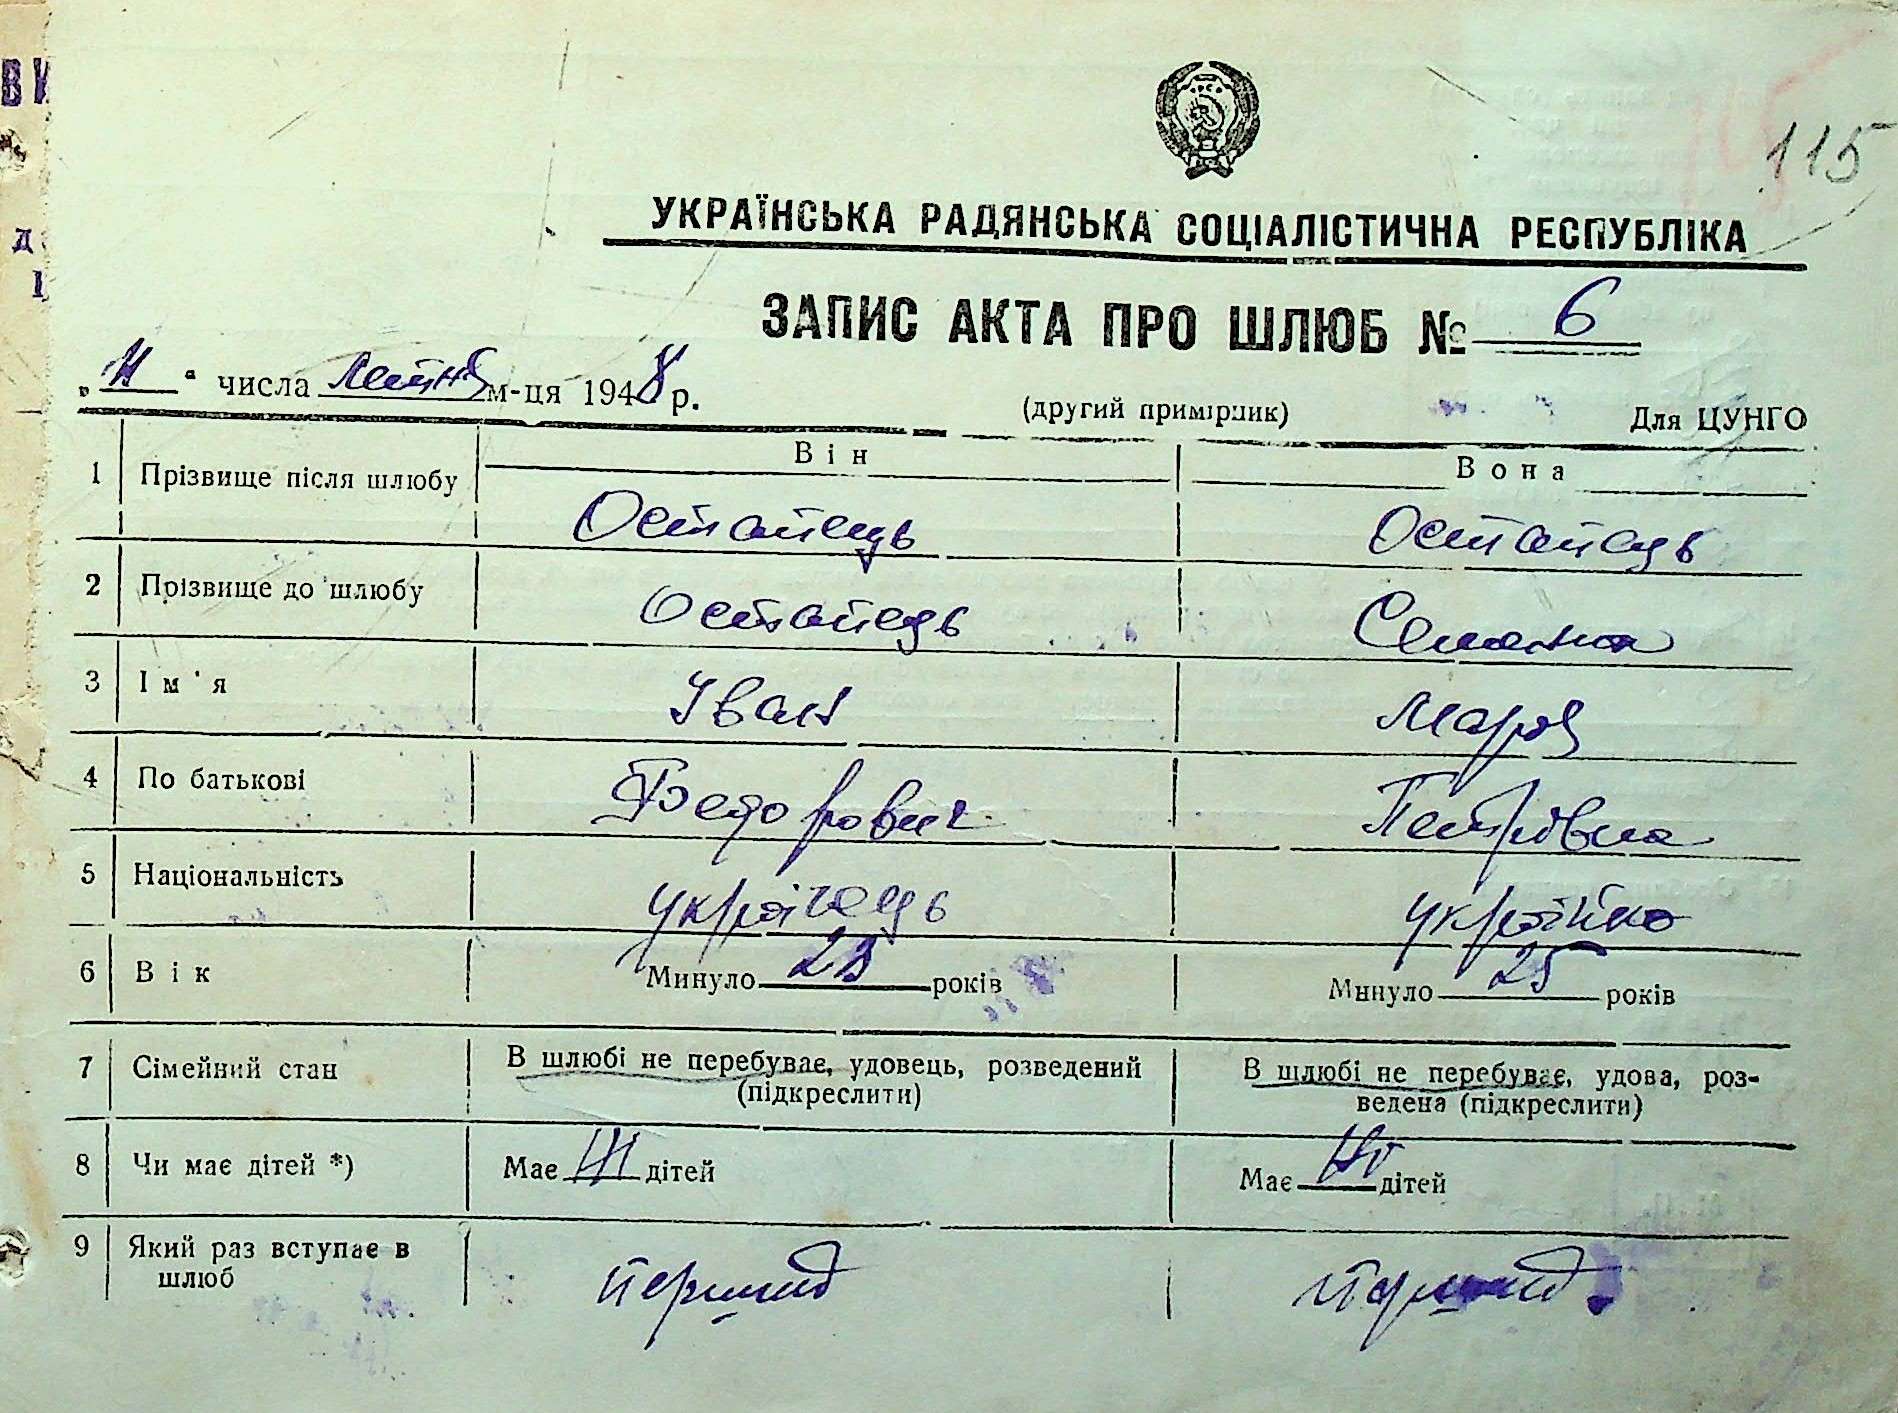 ВИ
115
УКРАЇНСЬКА РАДЯНСЬКА СОЦІАЛІСТИЧНА РЕСПУБЛІКА
ЗАПИС АКТА ПРО ШЛЮБ № 6
„ “ числа м-ця 1948 р.
(другий примірник) Для ЦУНГО
Він Вона
1 Прізвище після шлюбу Остапець Остапець
2 Прізвище до шлюбу Остапець
3 Ім'я Іван Марія
4 По батькові Федорович Петрівна
5 Національність українець українка
6 Вік Минуло 23 років Минуло 25 років
7 Сімейний стан В шлюбі не перебуває, удовець, розведений (підкреслити) В шлюбі не перебуває, удова, роз-
ведена (підкреслити)
8 Чи має дітей *) Має дітей Має дітей
9 Який раз вступає в шлюб перший перший